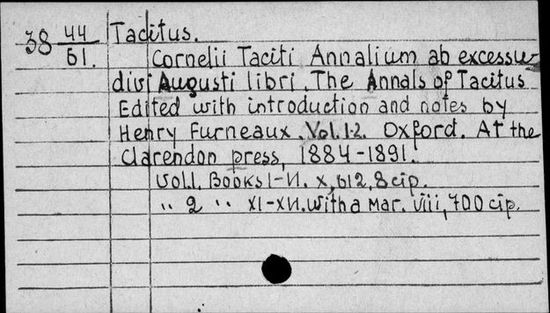 38 44/61. Tacitus.
Cornelii Taciti Annalium ab excessu
divi Augusti libri. The Annals of Tacitus
Edited with introduction and notes by
Henry Furneaux. Vol. 1-2. Oxford. At the
Clarendon press, 1884-1891.
Vol 1. Books I-VI. X, 612, 8 cip.
„ 2 „ XI-XVI. with a Mar. Viii, 700 cip.